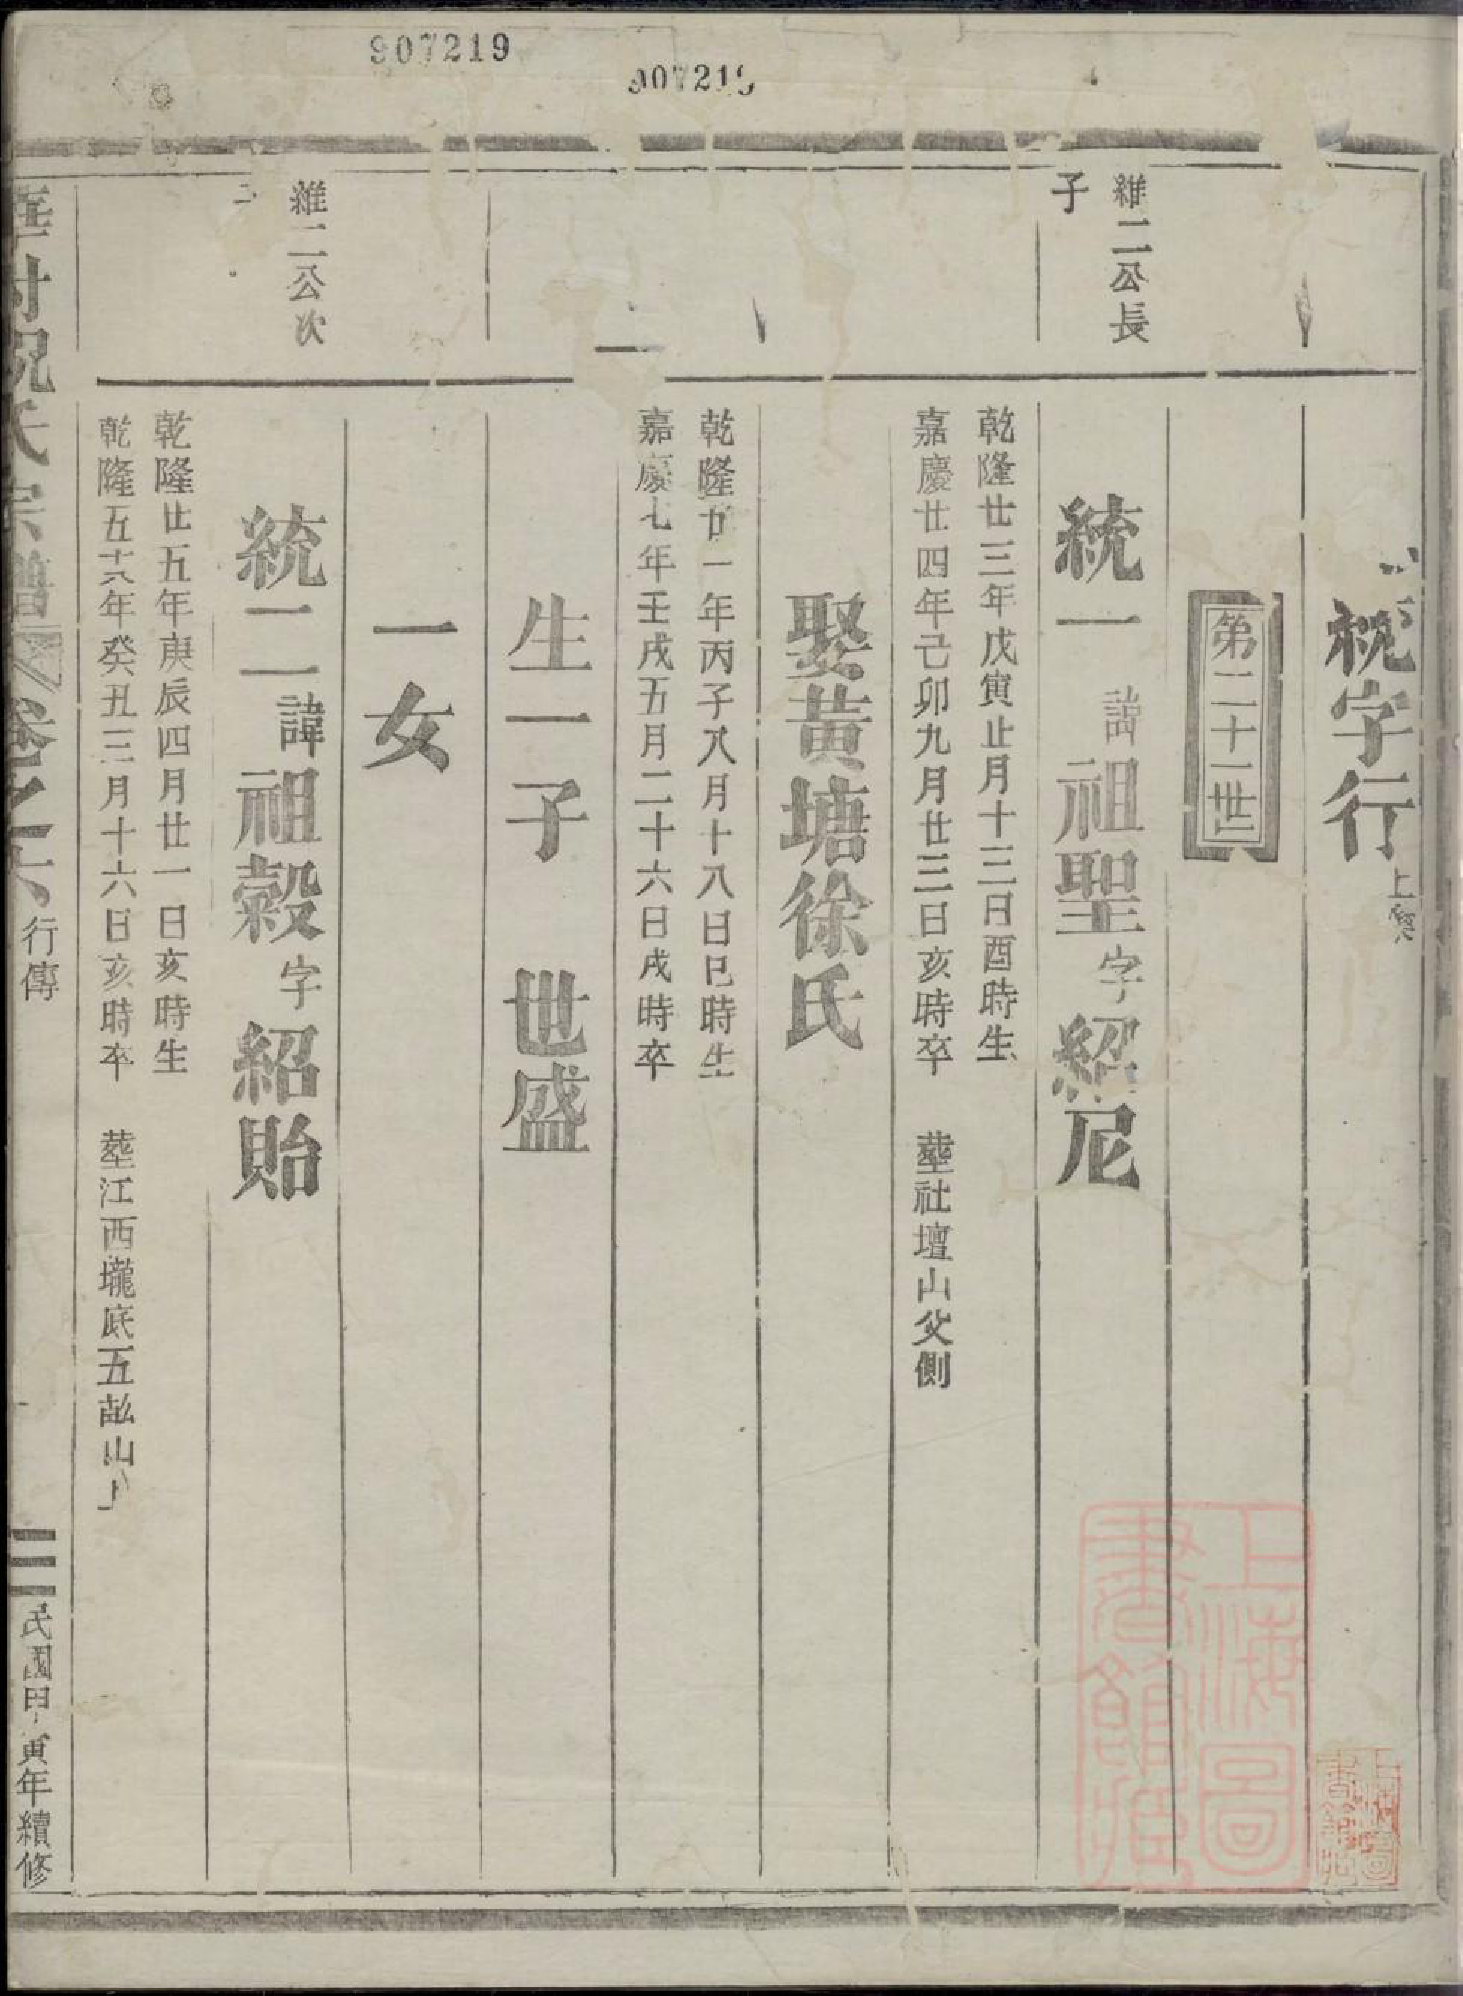 907219
907219
統字行上癸
第二十一世
維二公長
子
統一 諱祖聖字紹尼
乾隆廿三年戊寅止月十三日酉時生
嘉慶廿四年己卯九月廿三日亥時卒 塟社壇山父側
娶黃塘徐氏
乾隆廿一年丙子八月十八日巳時生
嘉慶七年壬戌五月二十六日戌時卒
生一子 世盛
一女
維二公次
統二 諱祖穀字紹貽
乾隆廿五年庚辰四月廿一日亥時生
乾隆五十八年癸丑三月十六日亥時卒 塟江西壠底五畝山上
祝氏宗譜 卷之六 行傳 二 民國甲寅年續修
上海圖書館藏
上海圖書館藏